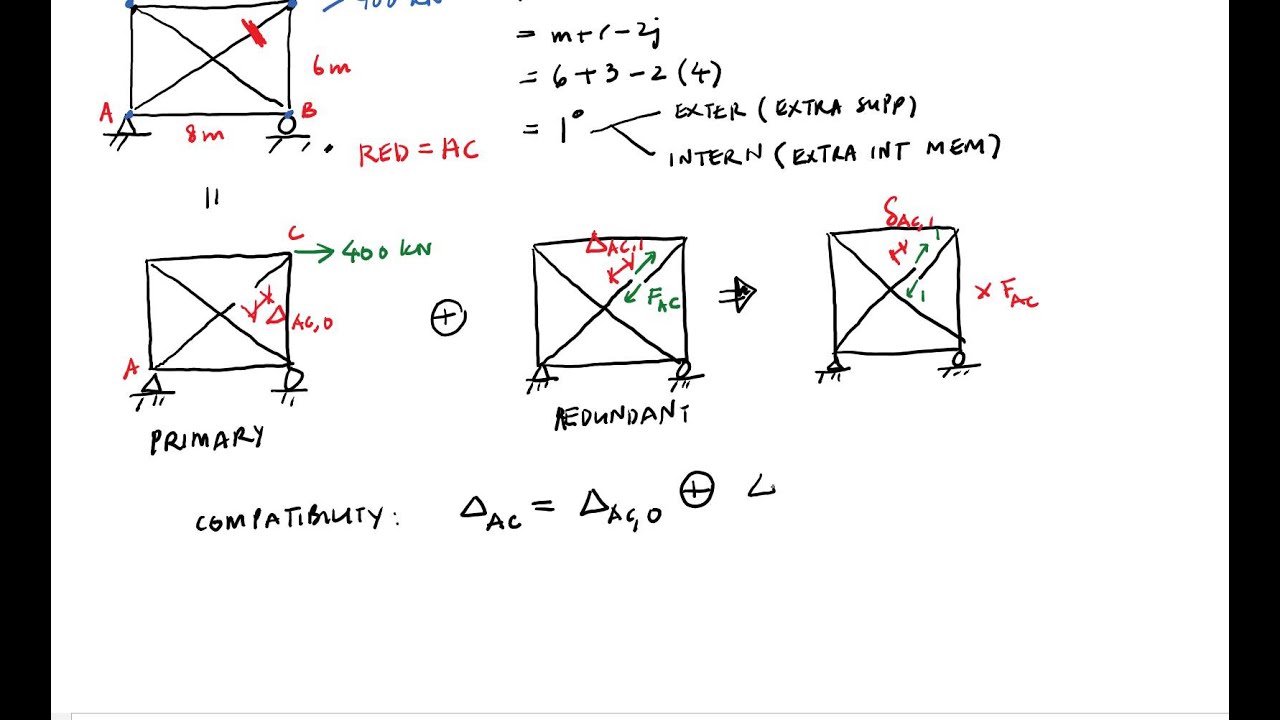 400 kN
= m+r-2j
6m
= 6+3-2(4)
A
B
8m
= 1°
EXTER (EXTRA SUPP)
INTERN (EXTRA INT MEM)
RED = AC
=
C
400 kN
Δ AC,0
A
PRIMARY
+
Δ AC,1
F AC
REDUNDANT
⇒
δ AC,1
1
1
x F AC
COMPATIBILITY: Δ AC = Δ AC,0 ⊕